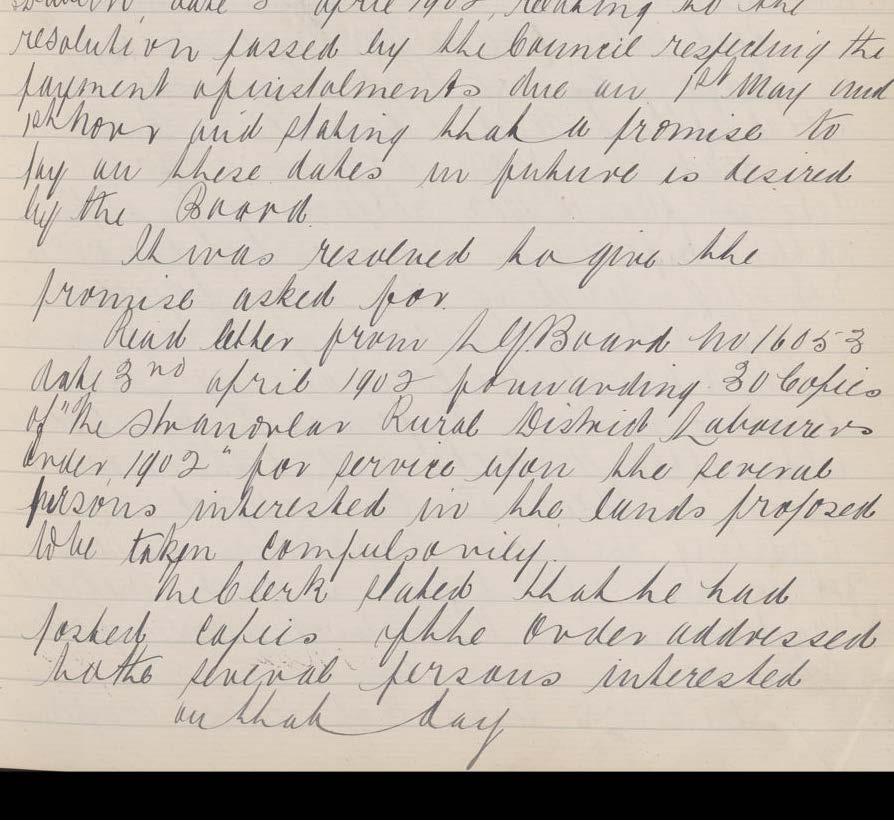 date 3 april 1902, relating to the
resolution passed by the Council respecting the
payment of instalments due on 1st May and
1st Novr and stating that a promise to
pay on these dates in future is desired
by the Board.
It was resolved to give the
promise asked for.
Read letter from LGBoard No 16053
date 3nd april 1902 forwarding 30 Copies
of "The Stranorlar Rural District Labourers
Order, 1902" for service upon the several
persons interested in the lands proposed
to be taken compulsorily.
The Clerk stated that he had
posted copies of the Order addressed
to the several persons interested
on that day